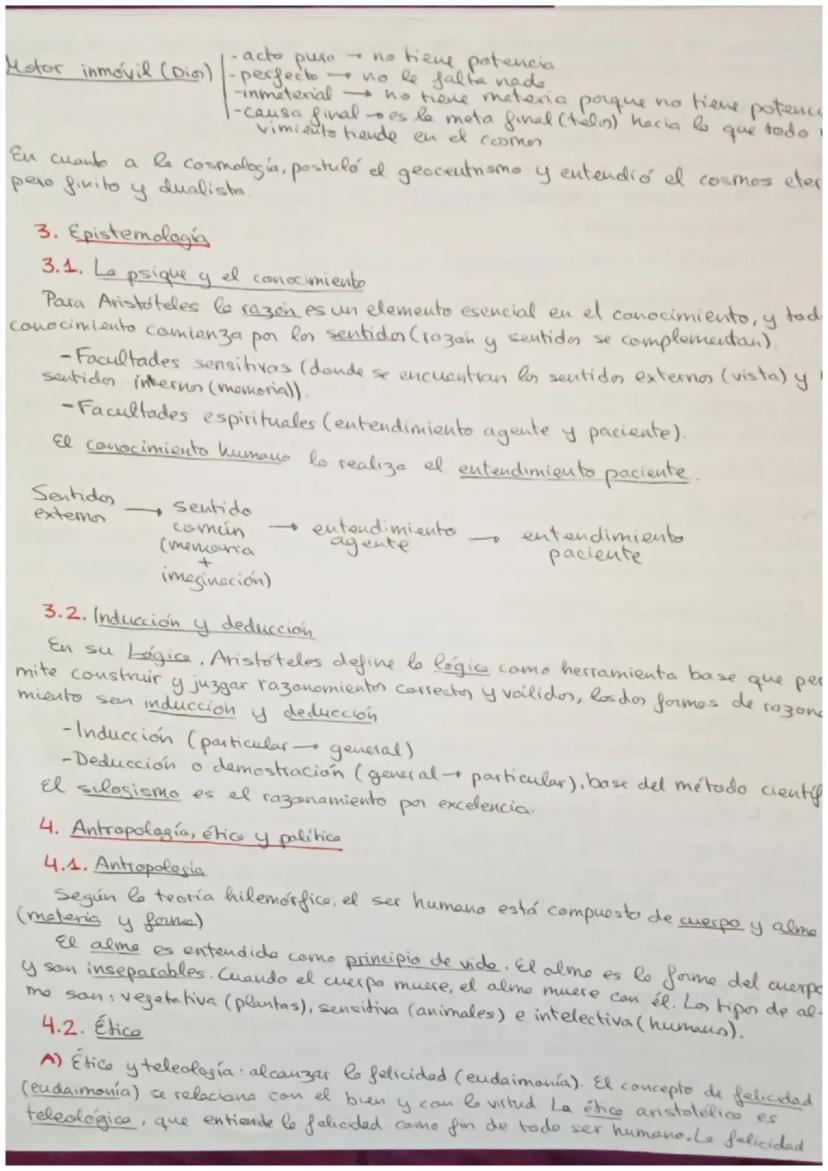 Motor inmóvil (Dios)
- acto puro → no tiene potencia
- perfecto → no le falta nada
- inmaterial → no tiene materia porque no tiene potenc
- causa final → es la meta final (telos) hacia lo que todo
vimiento tiende en el cosmos
En cuanto a la cosmología, postuló el geocentrismo y entendió el cosmos eter
pero finito y dualista.
3. Epistemología
3.1. La psique y el conocimiento
Para Aristóteles la razón es un elemento esencial en el conocimiento, y tod
conocimiento comienza por los sentidos (razón y sentidos se complementan).
- Facultades sensitivas (donde se encuentran los sentidos externos (vista) y
sentidos internos (memoria)).
- Facultades espirituales (entendimiento agente y paciente).
El conocimiento humano lo realiza el entendimiento paciente.
Sentidos externos → sentido común (memoria + imaginación) → entendimiento agente → entendimiento paciente
3.2. Inducción y deducción
En su Lógica, Aristóteles define la lógica como herramienta base que per
mite construir y juzgar razonamientos correctos y válidos, las dos formas de razona
miento son inducción y deducción
- Inducción (particular → general)
- Deducción o demostración (general → particular), base del método científ
El silogismo es el razonamiento por excelencia.
4. Antropología, ética y política
4.1. Antropología
Según la teoría hilemórfica, el ser humano está compuesto de cuerpo y alma
(materia y forma)
El alma es entendida como principio de vida. El alma es la forma del cuerpo
y son inseparables. Cuando el cuerpo muere, el alma muere con él. Los tipos de al-
ma son: vegetativa (plantas), sensitiva (animales) e intelectiva (humanos).
4.2. Ética
A) Ética y teleología: alcanzar la felicidad (eudaimonía). El concepto de felicidad
(eudaimonía) se relaciona con el bien y con la virtud. La ética aristotélica es
teleológica, que entiende la felicidad como fin de todo ser humano. La felicidad